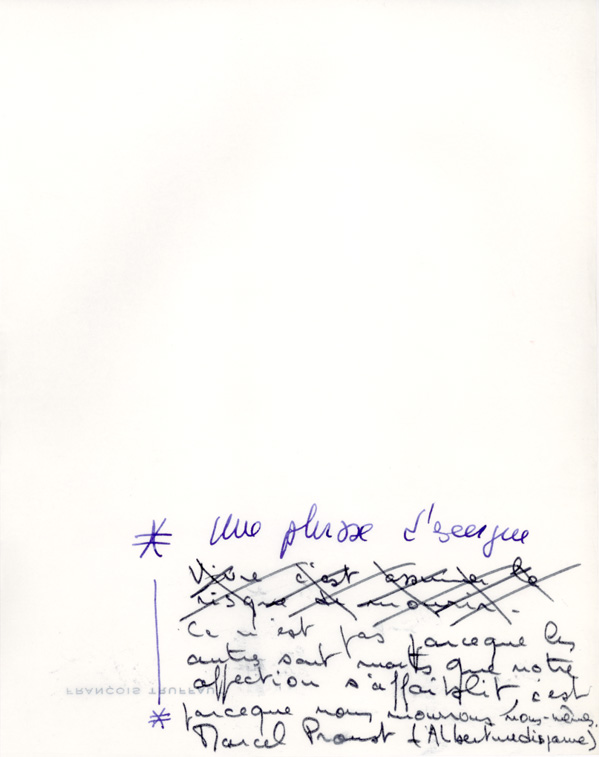 * Une phrase d'exergue
Vivre c'est assumer le
risque de mourir.
Ce n'est pas parceque les
autres sont morts que notre
affection s'affaiblit c'est
FRANÇOIS TRUFFAU
* parceque nous mourrons nous-mêmes.
Marcel Proust (Albertine disparue)